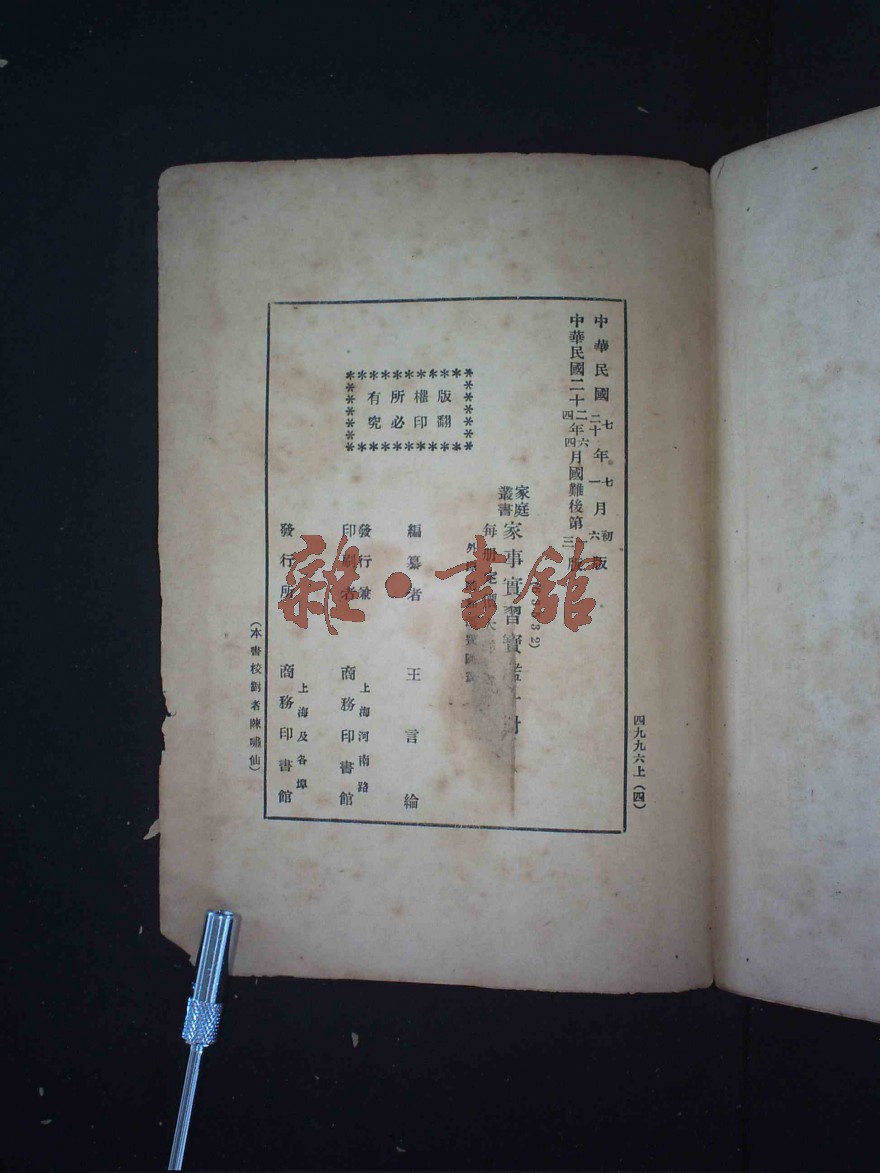 中華民國七年七月初版
二十年一月六版
中華民國二十二年六月國難後第三版
四四
家庭叢書
家事實習寶鑑
每册定價大
外埠
編纂者 王言綸
發行兼印刷者 上海河南路 商務印書館
發行所 上海及各埠 商務印書館
版權所有
翻印必究
(本書校對者陳嘯仙)
四九九六上(四)
雜·書館